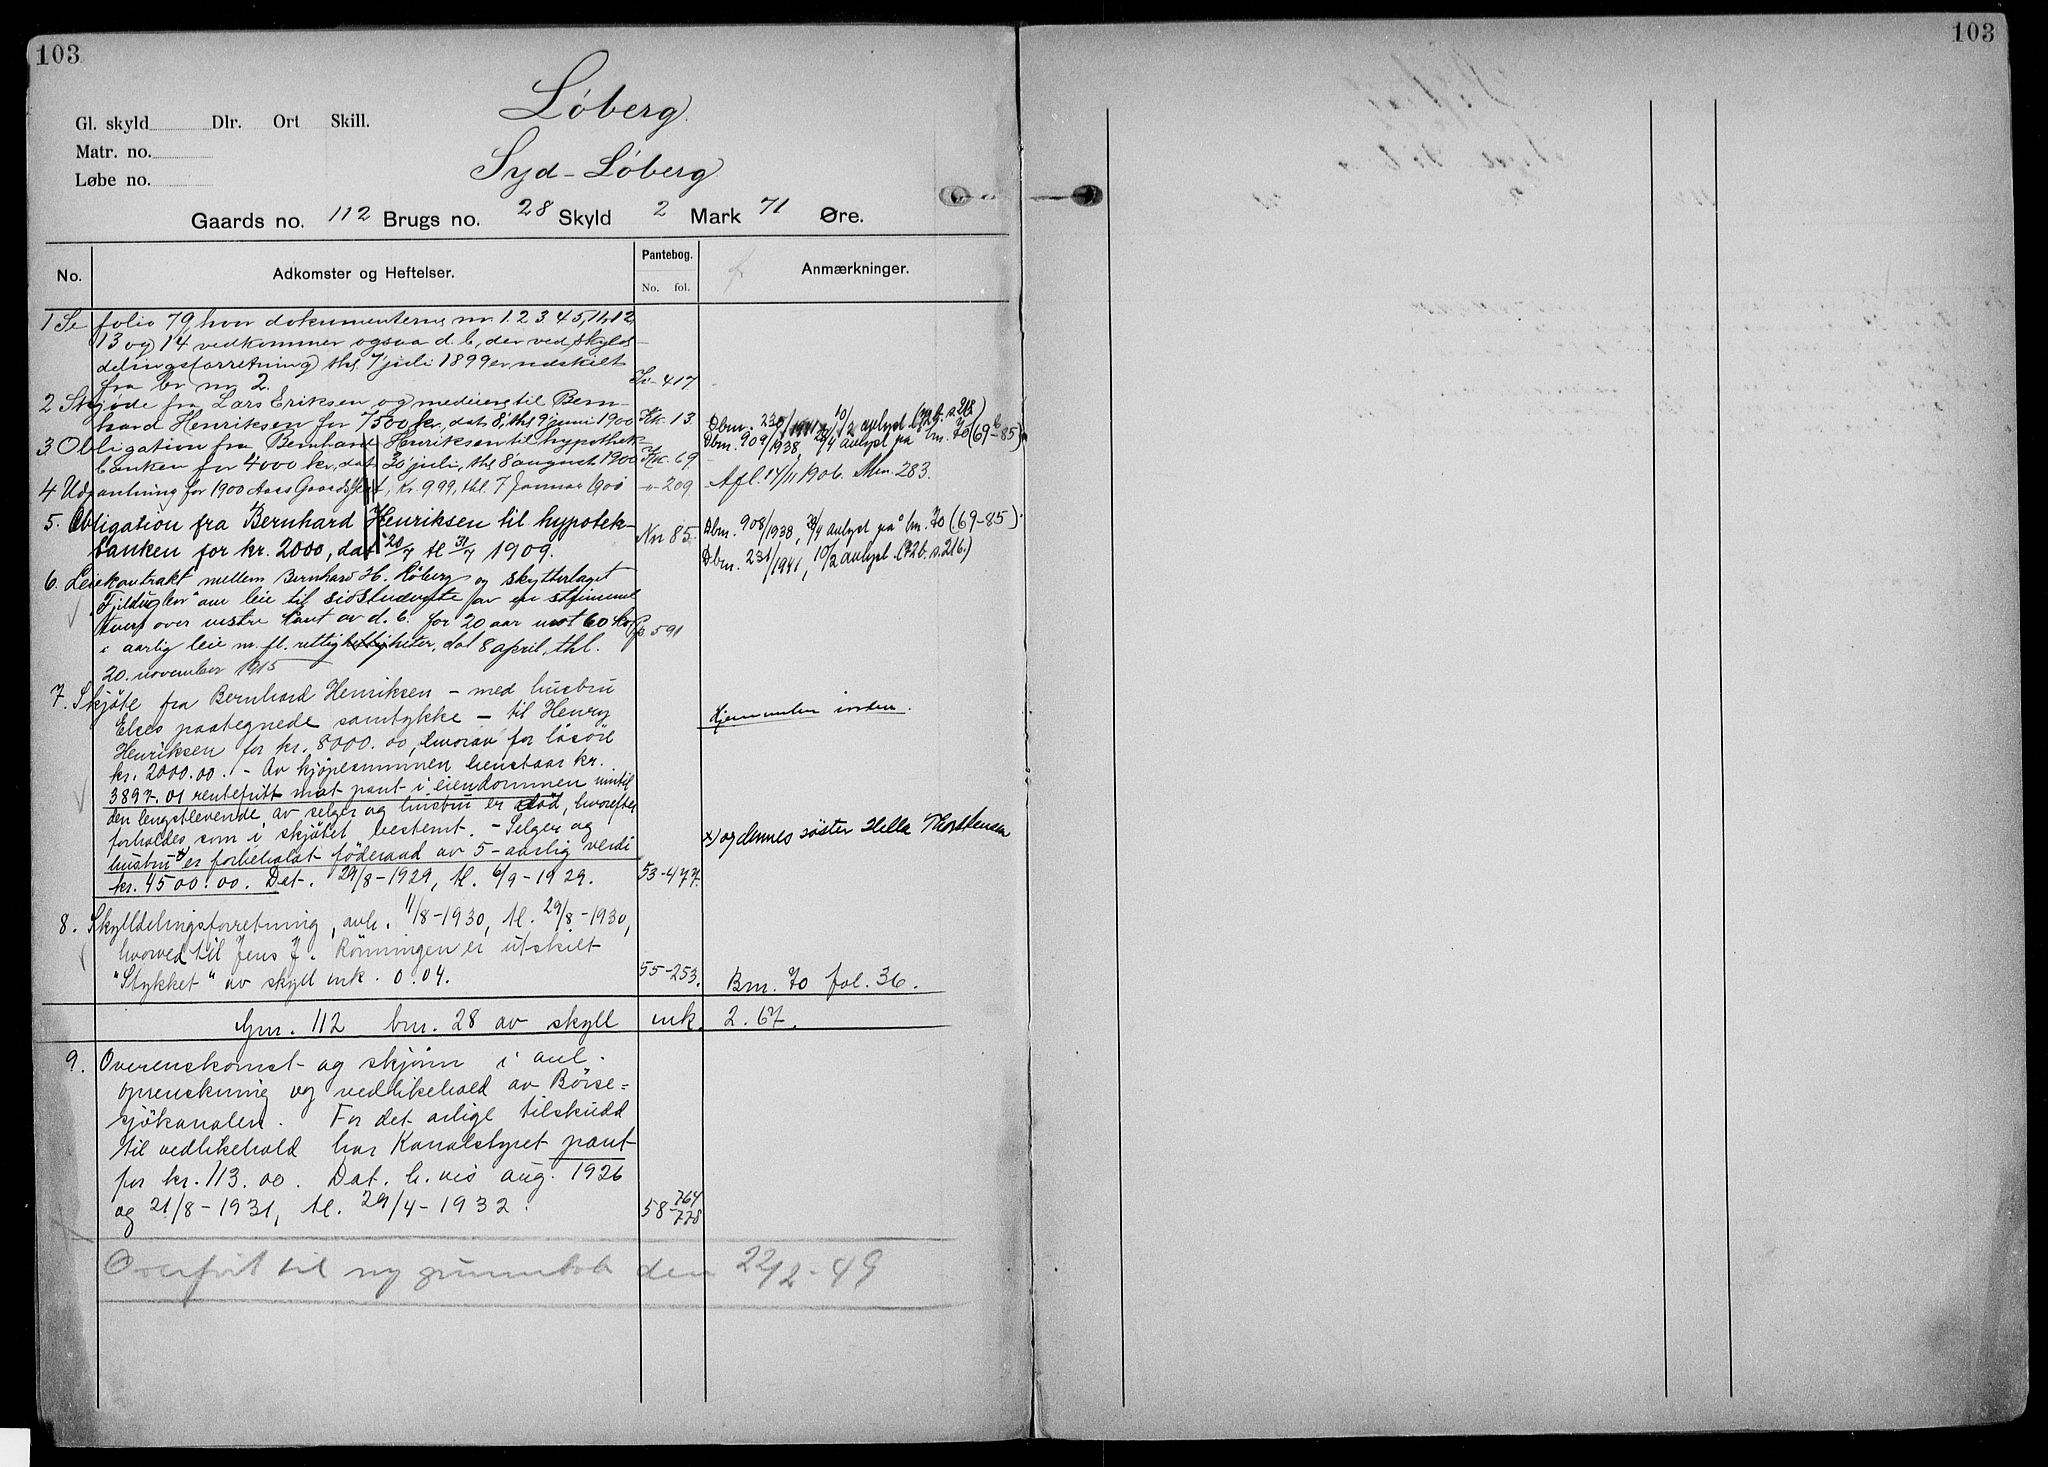 103
103
Løberg
Gl. skyld Dlr. Ort Skill.
Matr. no.
Syd-Løberg
Løbe no.
Gaards no. 112 Brugs no. 28 Skyld 2 Mark 71 Øre.
No. Adkomster og Heftelser. Pantebog. No. fol. Anmærkninger.
1 Se folio 79, hvor dokumenterne nr. 1. 2 3. 4 5, 11, 12,
13 og 14 vedkommer ogsaa d. b., der ved skyld-
delingsforretning thl. 7 juli 1899 er udskilt
fra br. nr 2. 417
2 Skjøde fra Lars Eriksen og medeiere til Bern-
hard Henriksen for 7500 kr., dat. 8, thl. 9 juni 1900 13.
Dbnr. 230/1941 10/2 avlyst (72b. s. 218)
3 Obligation fra Bernhard Henriksen til hypothek-
Dbnr. 909/1938, 29/4 avlyst på bnr. 70 (69-85)
banken for 4000 kr., dat. 30 juli, thl. 8 august 1900 69
4 Udpantning for 1900 Aars , Kr. 999, thl. 7 Januar 1901 -"- 209 Afl. 17/11 1906. 283.
5. Obligation fra Bernhard Henriksen til hypotek-
banken for kr. 2000, dat. 20/7 tl. 31/7 1909. Nr 85.
Dbnr. 908/1938, 29/4 avlyst på bnr. 70 (69-85).
Dbnr. 231/1941, 10/2 avlyst (72b. s. 216.)
6. Leiekontrakt mellem Bernhard H. Løberg og skytterlaget
"Fjelduglen" om leie til av en
tvers over vestre kant av d. b. for 20 aar mot 60 kr.
i aarlig leie m. fl. rettigheter, dat 8 april, thl. 591
20. november 1915
7. Skjøte fra Bernhard Henriksen - med hustru
Elses paategnede samtykke - til Henry
Hjemmelen inden.
Henriksen for kr. 8000.00, hvorav for løsøre
kr. 2000.00. - Av kjøpesummen henstaar kr.
3897.01 rentefritt mot pant i eiendommen inntil
den lengstlevende av selger og hustru er død, hvorefter
forholdes som i skjøtet bestemt. - Selger og
x) og dennes søster Hella Thorstensen
hustru x) er forbeholdt föderaad av 5-aarlig verdi
kr. 4500.00. Dat. 29/8-1929, tl. 6/9-1929. 53-477.
8. Skylldelingsforretning, avh. 11/8-1930, tl. 29/8-1930,
hvorved til Jens J. Rönningen er utskilt
"Stykket" av skyll mk. 0.04. 55-253. Bnr. 70 fol. 36.
Gnr. 112 bnr. 28 av skyll mk. 2.67.
9. Overenskomst og skjönn i anl.
oprenskning og vedlikehold av Börse-
sjökanalen. For det aarlige tilskudd
til vedlikehold har Kanalstyret pant
for kr. 113.00. Dat. h. vis aug. 1926
og 21/8-1931, tl. 29/4-1932. 58-764/778
Overført til ny grunnbok den 22/2-49